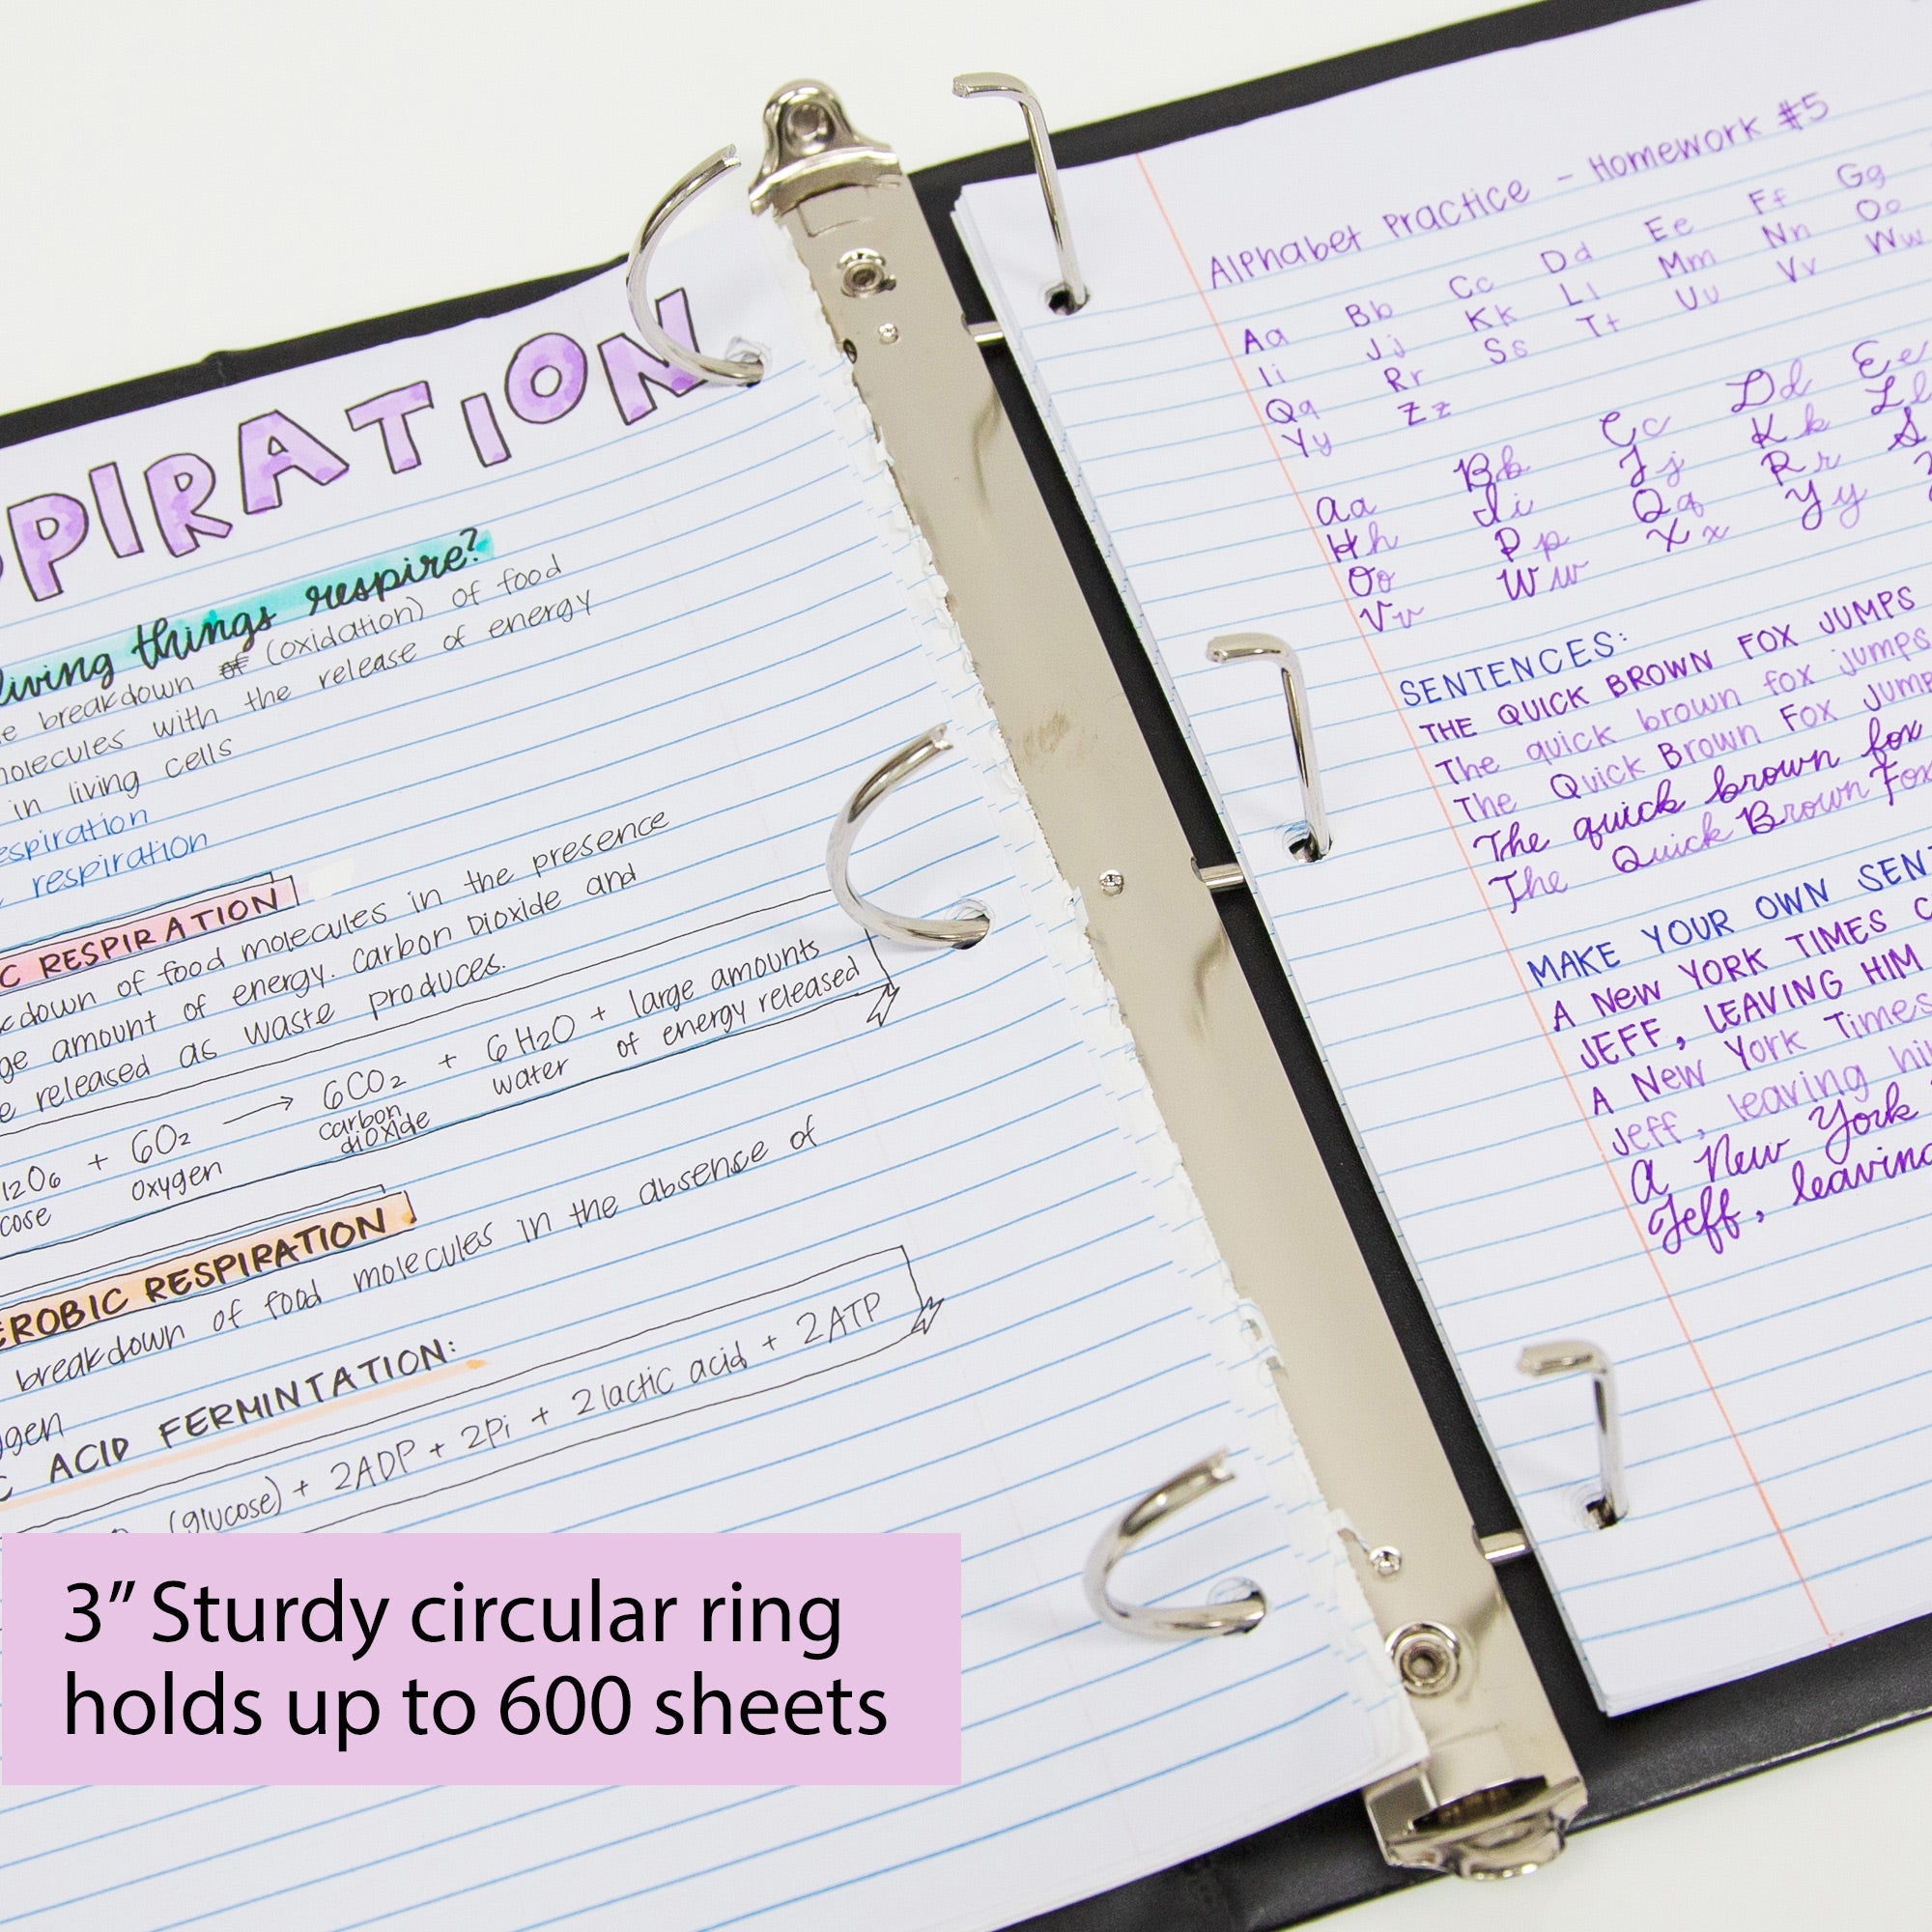 PIRATION
living things respire?
breakdown of (oxidation) of food
molecules with the release of energy
in living cells
respiration
respiration
C RESPIRATION
breakdown of food molecules in the presence
amount of energy. Carbon Dioxide and
released as waste produces.
12O6 + 6O2 → 6CO2 + 6H2O + large amounts
of energy released
cose oxygen carbon dioxide water
EROBIC RESPIRATION
breakdown of food molecules in the absence of
gen
C ACID FERMINTATION:
(glucose) + 2ADP + 2Pi + 2lactic acid + 2ATP
3" Sturdy circular ring
holds up to 600 sheets
Alphabet Practice - Homework #5
Aa Bb Cc Dd Ee Ff Gg
Ii Jj Kk Ll Mm Nn Oo
Qq Rr Ss Tt Uu Vv Ww
Yy Zz
Aa Bb Cc Dd Ee
Hh Ii Jj Kk Ll
Oo Pp Qq Rr S
Vv Ww Xx Yy
SENTENCES:
THE QUICK BROWN FOX JUMPS
The quick brown fox jumps
The Quick Brown Fox Jump
The quick brown fox
The Quick Brown Fox
MAKE YOUR OWN SENT
A NEW YORK TIMES C
JEFF, LEAVING HIM
A New York Times
Jeff, leaving hi
A New York
Jeff, leaving